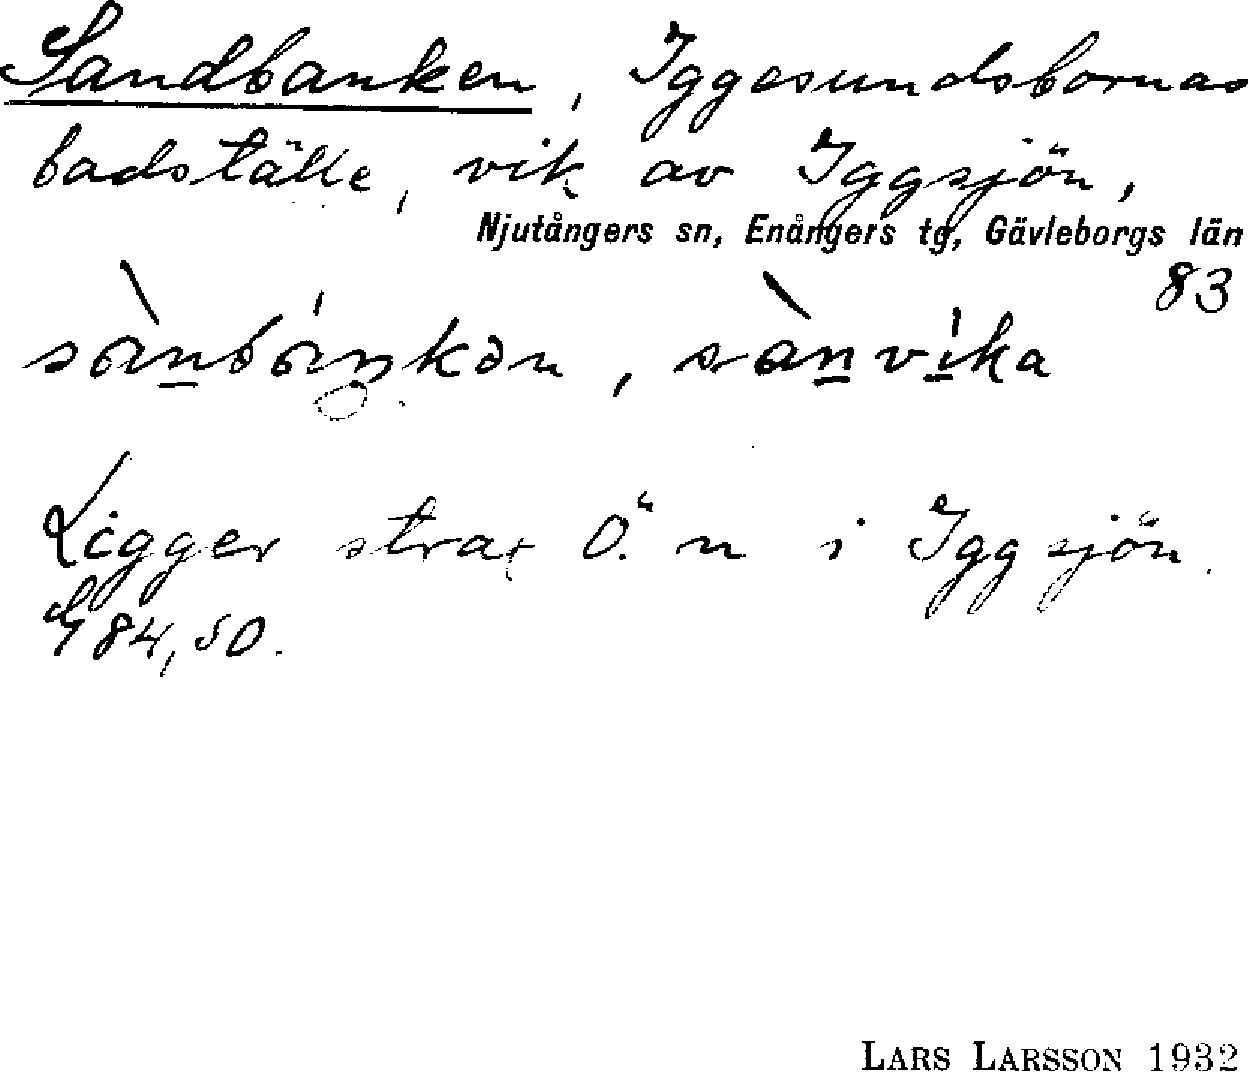 Sandbanken, Iggesundsbornas
badställe, vik av Iggsjön,
Njutångers sn, Enångers tg, Gävleborgs län
83
sànbáŋkən, sànvika
Ligger strax Ö. n i Iggsjön.
G 84,50.
LARS LARSSON 1932